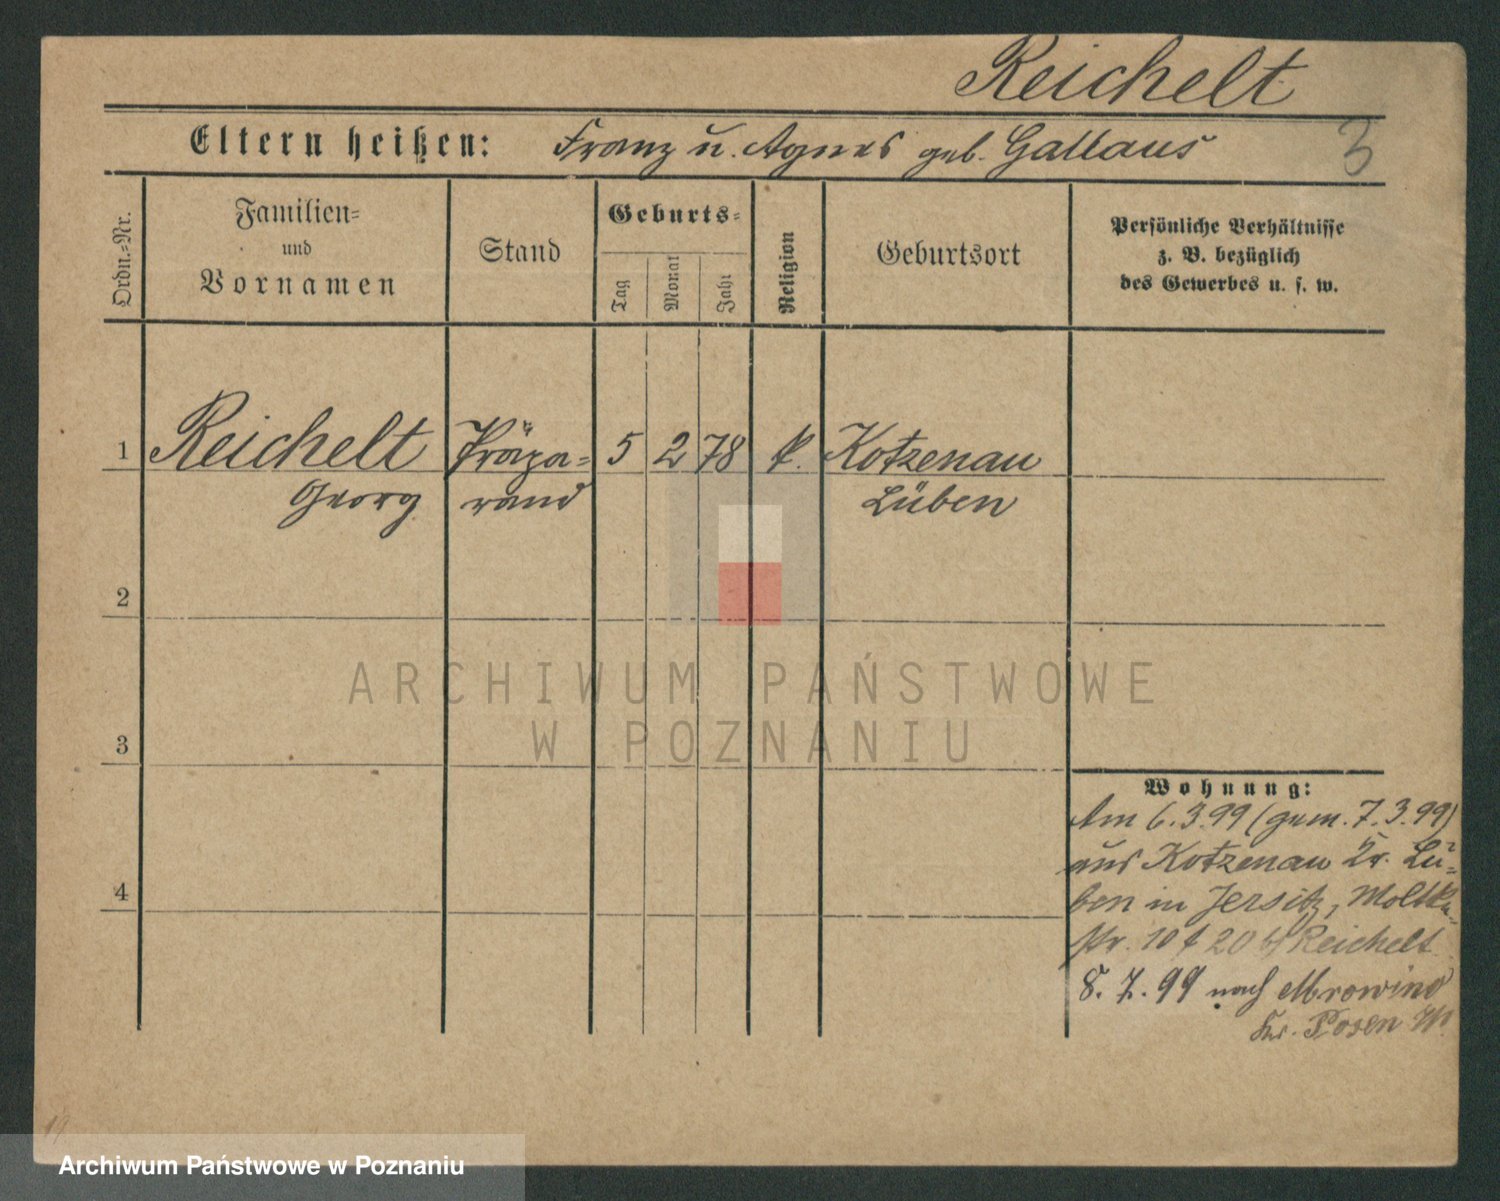 Reichelt
Eltern heißen: Franz u. Agnes geb. Gallaus
3
Ordn.-Nr.
Familien-
und
Vornamen
Stand
Geburts-
Tag
Monat
Jahr
Religion
Geburtsort
Persönliche Verhältnisse
z. B. bezüglich
des Gewerbes u. s. w.
1 Reichelt Präpa- 5 2 78 k. Kotzenau
Georg rand Lüben
2
3
4
Wohnung:
Am 6.3.99 (gem. 7.3.99)
aus Kotzenau Kr. Lü-
ben in Jersitz, Moltke-
str. 10 b/Reichelt
8.7.99 nach Mrowino
Kr. Posen W.
ARCHIWUM PAŃSTWOWE
W POZNANIU
Archiwum Państwowe w Poznaniu